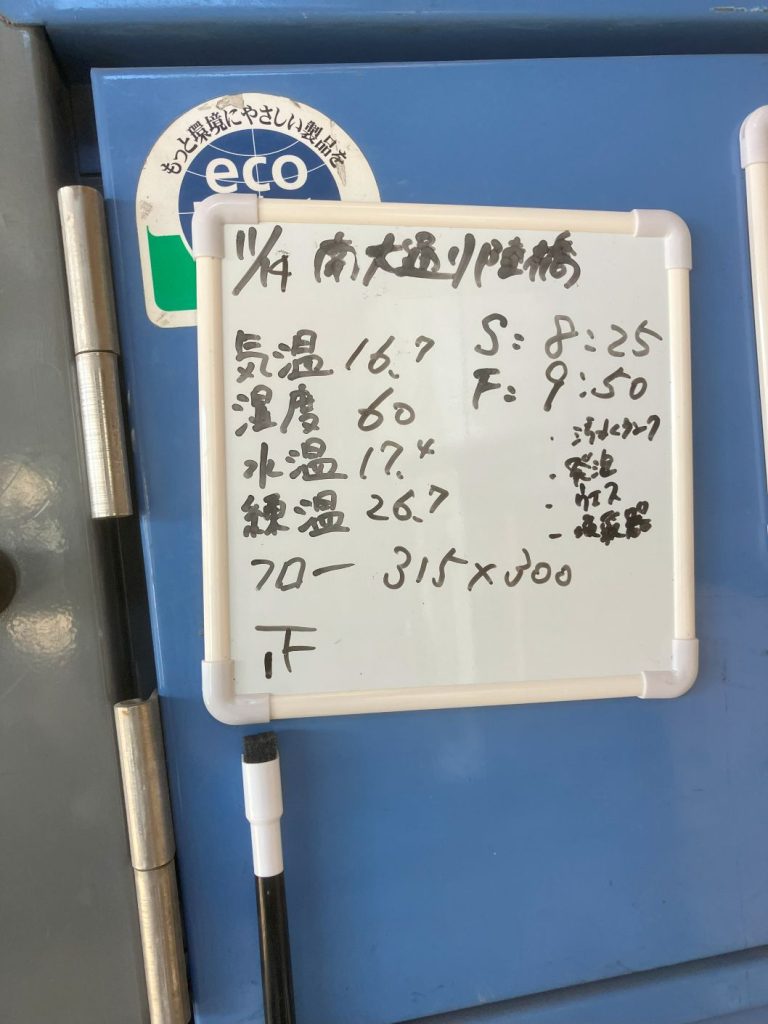 もっと環境にやさしい製品を
eco
11/14 南大通り陸橋
気温 16.7
湿度 60
水温 17.4
練温 26.7
フロー 315×300
S: 8:25
F: 9:50
・汚水タンク
・発泡
・ウエス